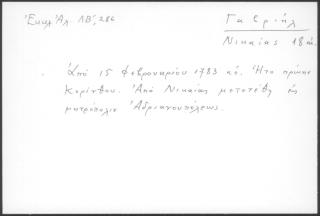 Ἐκκλ. Ἀλ. ΛΒ', 286
Γαβριήλ
Νικαίας 18 αἰ.
Ἀπό 15 Φεβρουαρίου 1783 κἑ. Ἦτο πρώην
Κορίνθου. Ἀπό Νικαίας μετετέθη εἰς
μητρόπολιν Ἀδριανουπόλεως.